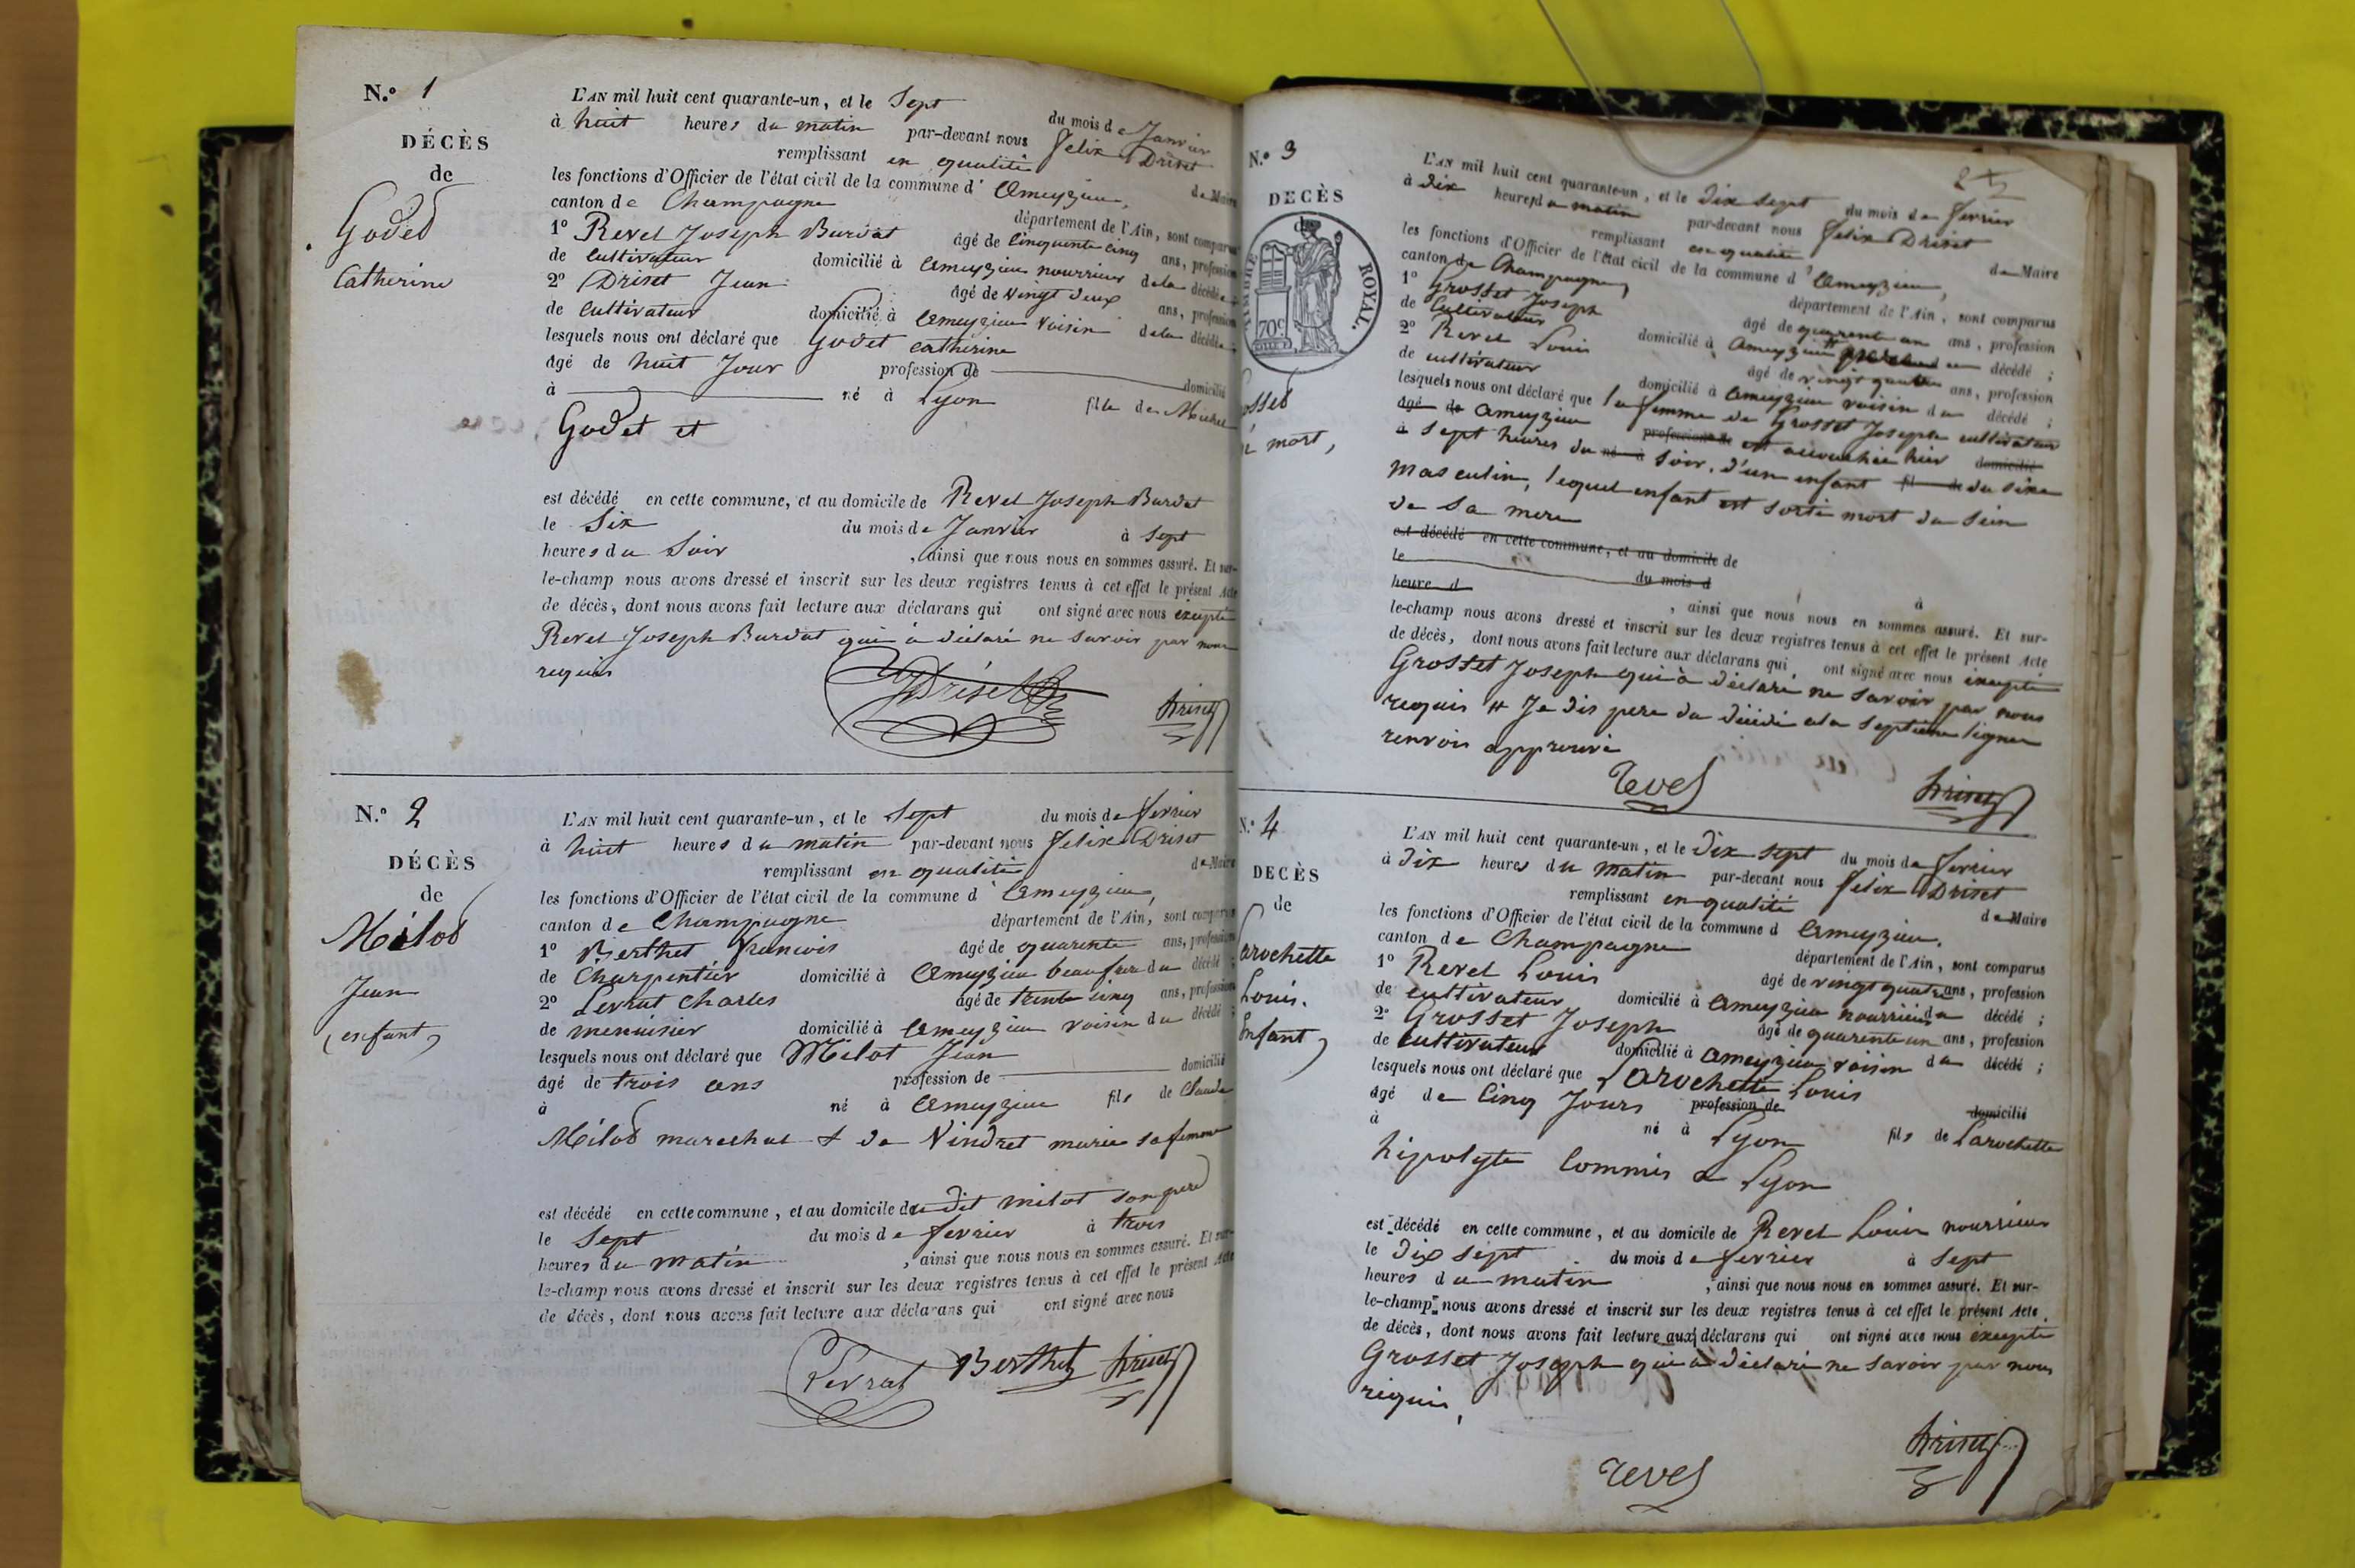 N.º 1
DÉCÈS
de
Goded
Catherine
L'AN mil huit cent quarante-un, et le Sept du mois de Janvier
à huit heures du matin par-devant nous Felix Driset
remplissant en qualité de Maire
les fonctions d'Officier de l'état civil de la commune d' Ameyzieu,
canton de Champagne département de l'Ain, sont comparus
1º Revel Joseph Burdat âgé de Cinquante cinq ans, profession
de Cultivateur domicilié à Ameyzieu nourricier de la décédée;
2º Driset Jean âgé de Vingt deux ans, profession
de Cultivateur domicilié à Ameyzieu voisin de la décédée;
lesquels nous ont déclaré que Godet Catherine
âgé de huit Jour profession de domicilié
à né à Lyon fille de Michel
Godet et
est décédé en cette commune, et au domicile de Revel Joseph Burdat
le Six du mois de Janvier à Sept
heures du Soir, ainsi que nous nous en sommes assuré. Et sur-
le-champ nous avons dressé et inscrit sur les deux registres tenus à cet effet le présent Acte
de décès, dont nous avons fait lecture aux déclarans qui ont signé avec nous excepté
Revel Joseph Burdat qui à déclaré ne savoir par nous
requis
Driset
Driset
N.º 2
DÉCÈS
de
Milod
Jean
(enfant)
L'AN mil huit cent quarante-un, et le Sept du mois de fevrier
à huit heures du matin par-devant nous Felix Driset
remplissant en qualité de Maire
les fonctions d'Officier de l'état civil de la commune d' Ameyzieu,
canton de Champagne département de l'Ain, sont comparus
1º Berthet francois âgé de quarente ans, profession
de Charpentier domicilié à Ameyzieu beaufrere du décédé;
2º Levrat Charles âgé de trente cinq ans, profession
de menuisier domicilié à Ameyzieu voisin du décédé;
lesquels nous ont déclaré que Milot Jean
âgé de trois ans profession de domicilié
à né à Ameyzieu fils de Claude
Milod marechal & de Vindret marie sa femme
est décédé en cette commune, et au domicile dudit milot son pere
le Sept du mois de fevrier à trois
heures du matin, ainsi que nous nous en sommes assuré. Et sur-
le-champ nous avons dressé et inscrit sur les deux registres tenus à cet effet le présent Acte
de décès, dont nous avons fait lecture aux déclarans qui ont signé avec nous
Levrat Berthet Driset
N.º 3
DECÈS
de
TIMBRE ROYAL.
70c
osset
né mort,
L'AN mil huit cent quarante-un, et le Dix Sept du mois de fevrier
à Dix heures du matin par-devant nous Felix Driset
remplissant en qualité de Maire
les fonctions d'Officier de l'état civil de la commune d' Ameyzieu,
canton de Champagne, département de l'Ain, sont comparus
1º Grosset Joseph âgé de quarent un ans, profession
de Cultivateur domicilié à Ameyzieu # décédé;
2º Revel Louis âgé de vingt quatre ans, profession
de cultivateur domicilié à Ameyzieu voisin du décédé;
lesquels nous ont déclaré que la femme de Grosset Joseph cultivateur
âgé de Ameyzieu profession de est accouchée hier domicilié
à Sept heures du né à Soir, d'un enfant fil de du sexe
masculin, lequel enfant est sorti mort du sein
de sa mere
est décédé en cette commune, et au domicile de
le du mois d à
heure d , ainsi que nous nous en sommes assuré. Et sur-
le-champ nous avons dressé et inscrit sur les deux registres tenus à cet effet le présent Acte
de décès, dont nous avons fait lecture aux déclarans qui ont signé avec nous excepté
Grosset Joseph qui à déclaré ne savoir par nous
requis # Je dis pere du décédé a la septieme ligne
renvoi approuvé
revel Driset
N.º 4
DECÈS
de
arochette
Louis.
Enfant)
L'AN mil huit cent quarante-un, et le Dix Sept du mois de fevrier
à Dix heures du matin par-devant nous Felix Driset
remplissant en qualité de Maire
les fonctions d'Officier de l'état civil de la commune d Ameyzieu,
canton de Champagne département de l'Ain, sont comparus
1º Revel Louis âgé de vingt quatre ans, profession
de cultivateur domicilié à Ameyzieu nourricier du décédé;
2º Grosset Joseph âgé de quarente un ans, profession
de cultivateur domicilié à Ameyzieu voisin du décédé;
lesquels nous ont déclaré que Larochette Louis
âgé de Cinq Jours profession de domicilié
à né à Lyon fils de Larochette
hipolyte Commis a Lyon
est décédé en cette commune, et au domicile de Revel Louis nourricier
le Dix Sept du mois de fevrier à Sept
heures du matin, ainsi que nous nous en sommes assuré. Et sur-
le-champ nous avons dressé et inscrit sur les deux registres tenus à cet effet le présent Acte.
de décès, dont nous avons fait lecture aux déclarans qui ont signé avec nous excepté
Grosset Joseph qui à déclaré ne savoir par nous
requis,
Driset
revel